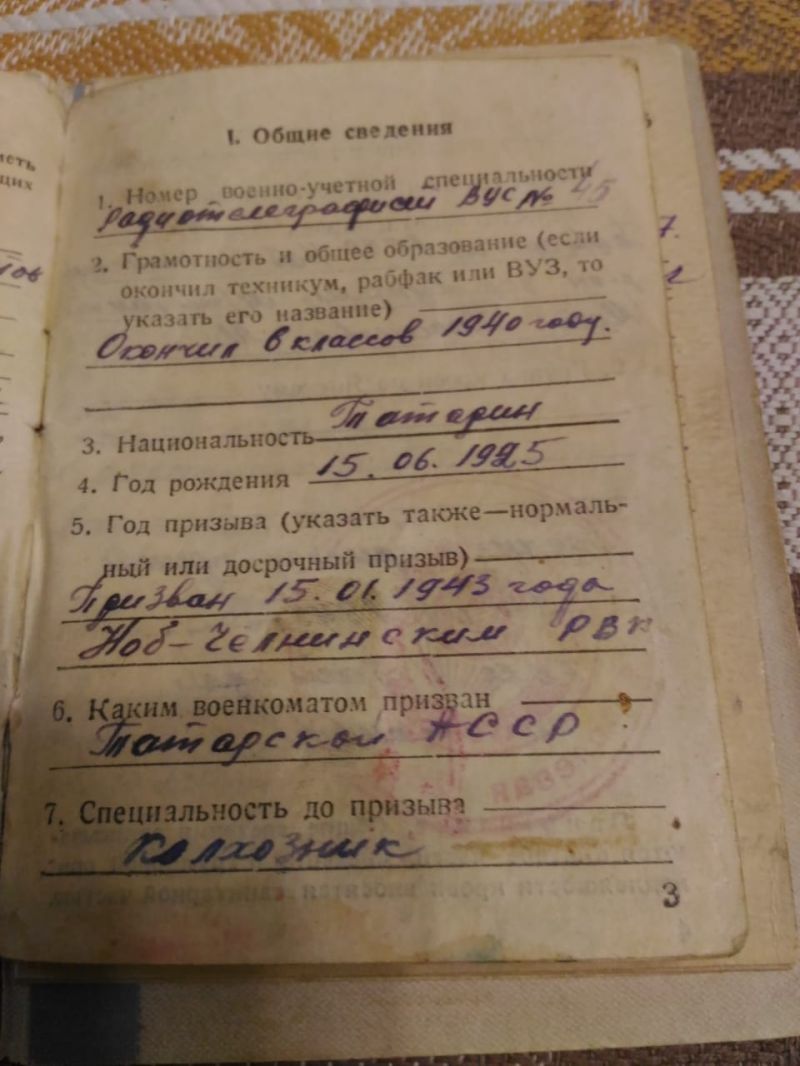 I. Общие сведения
1. Номер военно-учетной специальности
Радиотелеграфист ВУС № 45
2. Грамотность и общее образование (если
окончил техникум, рабфак или ВУЗ, то
указать его название)
Окончил 6 классов 1940 году.
3. Национальность Татарин
4. Год рождения 15.06.1925
5. Год призыва (указать также—нормаль-
ный или досрочный призыв)
Призван 15.01.1943 года
Наб-Челнинским РВК
6. Каким военкоматом призван
Татарской АССР
7. Специальность до призыва
Колхозник
3